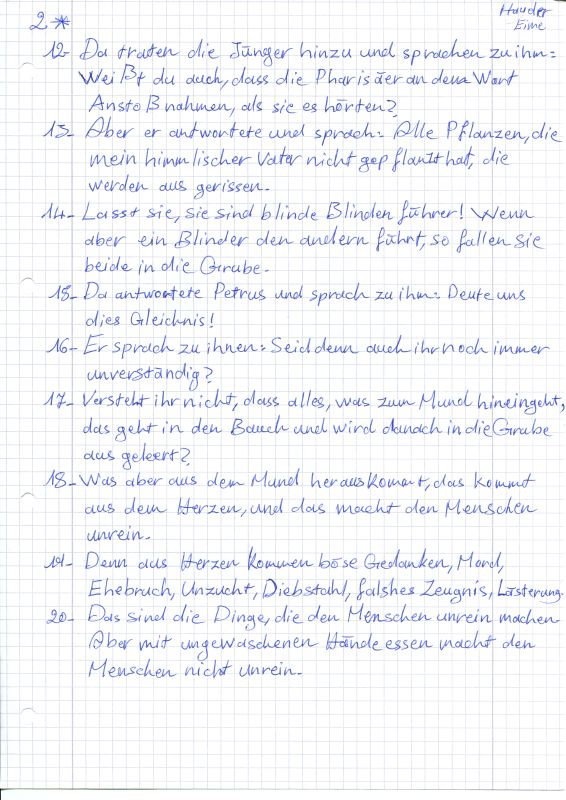 2 *
Hauder
Eime
12- Da traten die Jünger hinzu und sprachen zu ihm:
Weißt du auch, dass die Pharisäer an dem Wort
Anstoß nahmen, als sie es hörten?
13- Aber er antwortete und sprach: Alle Pflanzen, die
mein himmlischer Vater nicht gepflanzt hat, die
werden aus gerissen.
14- Lasst sie, sie sind blinde Blinden führer! Wenn
aber ein Blinder den andern führt, so fallen sie
beide in die Grube.
15- Da antwortete Petrus und sprach zu ihm: Deute uns
dies Gleichnis!
16- Er sprach zu ihnen: Seid denn auch ihr noch immer
unverständig?
17- Versteht ihr nicht, dass alles, was zum Mund hineingeht,
das geht in den Bauch und wird danach in die Grube
aus geleert?
18- Was aber aus dem Mund heraus kommt, das kommt
aus dem Herzen, und das macht den Menschen
unrein.
19- Denn aus Herzen kommen böse Gedanken, Mord,
Ehebruch, Unzucht, Diebstahl, falshes Zeugnis, Lästerung.
20- Das sind die Dinge, die den Menschen unrein machen
Aber mit ungewaschenen Hände essen macht den
Menschen nicht unrein.